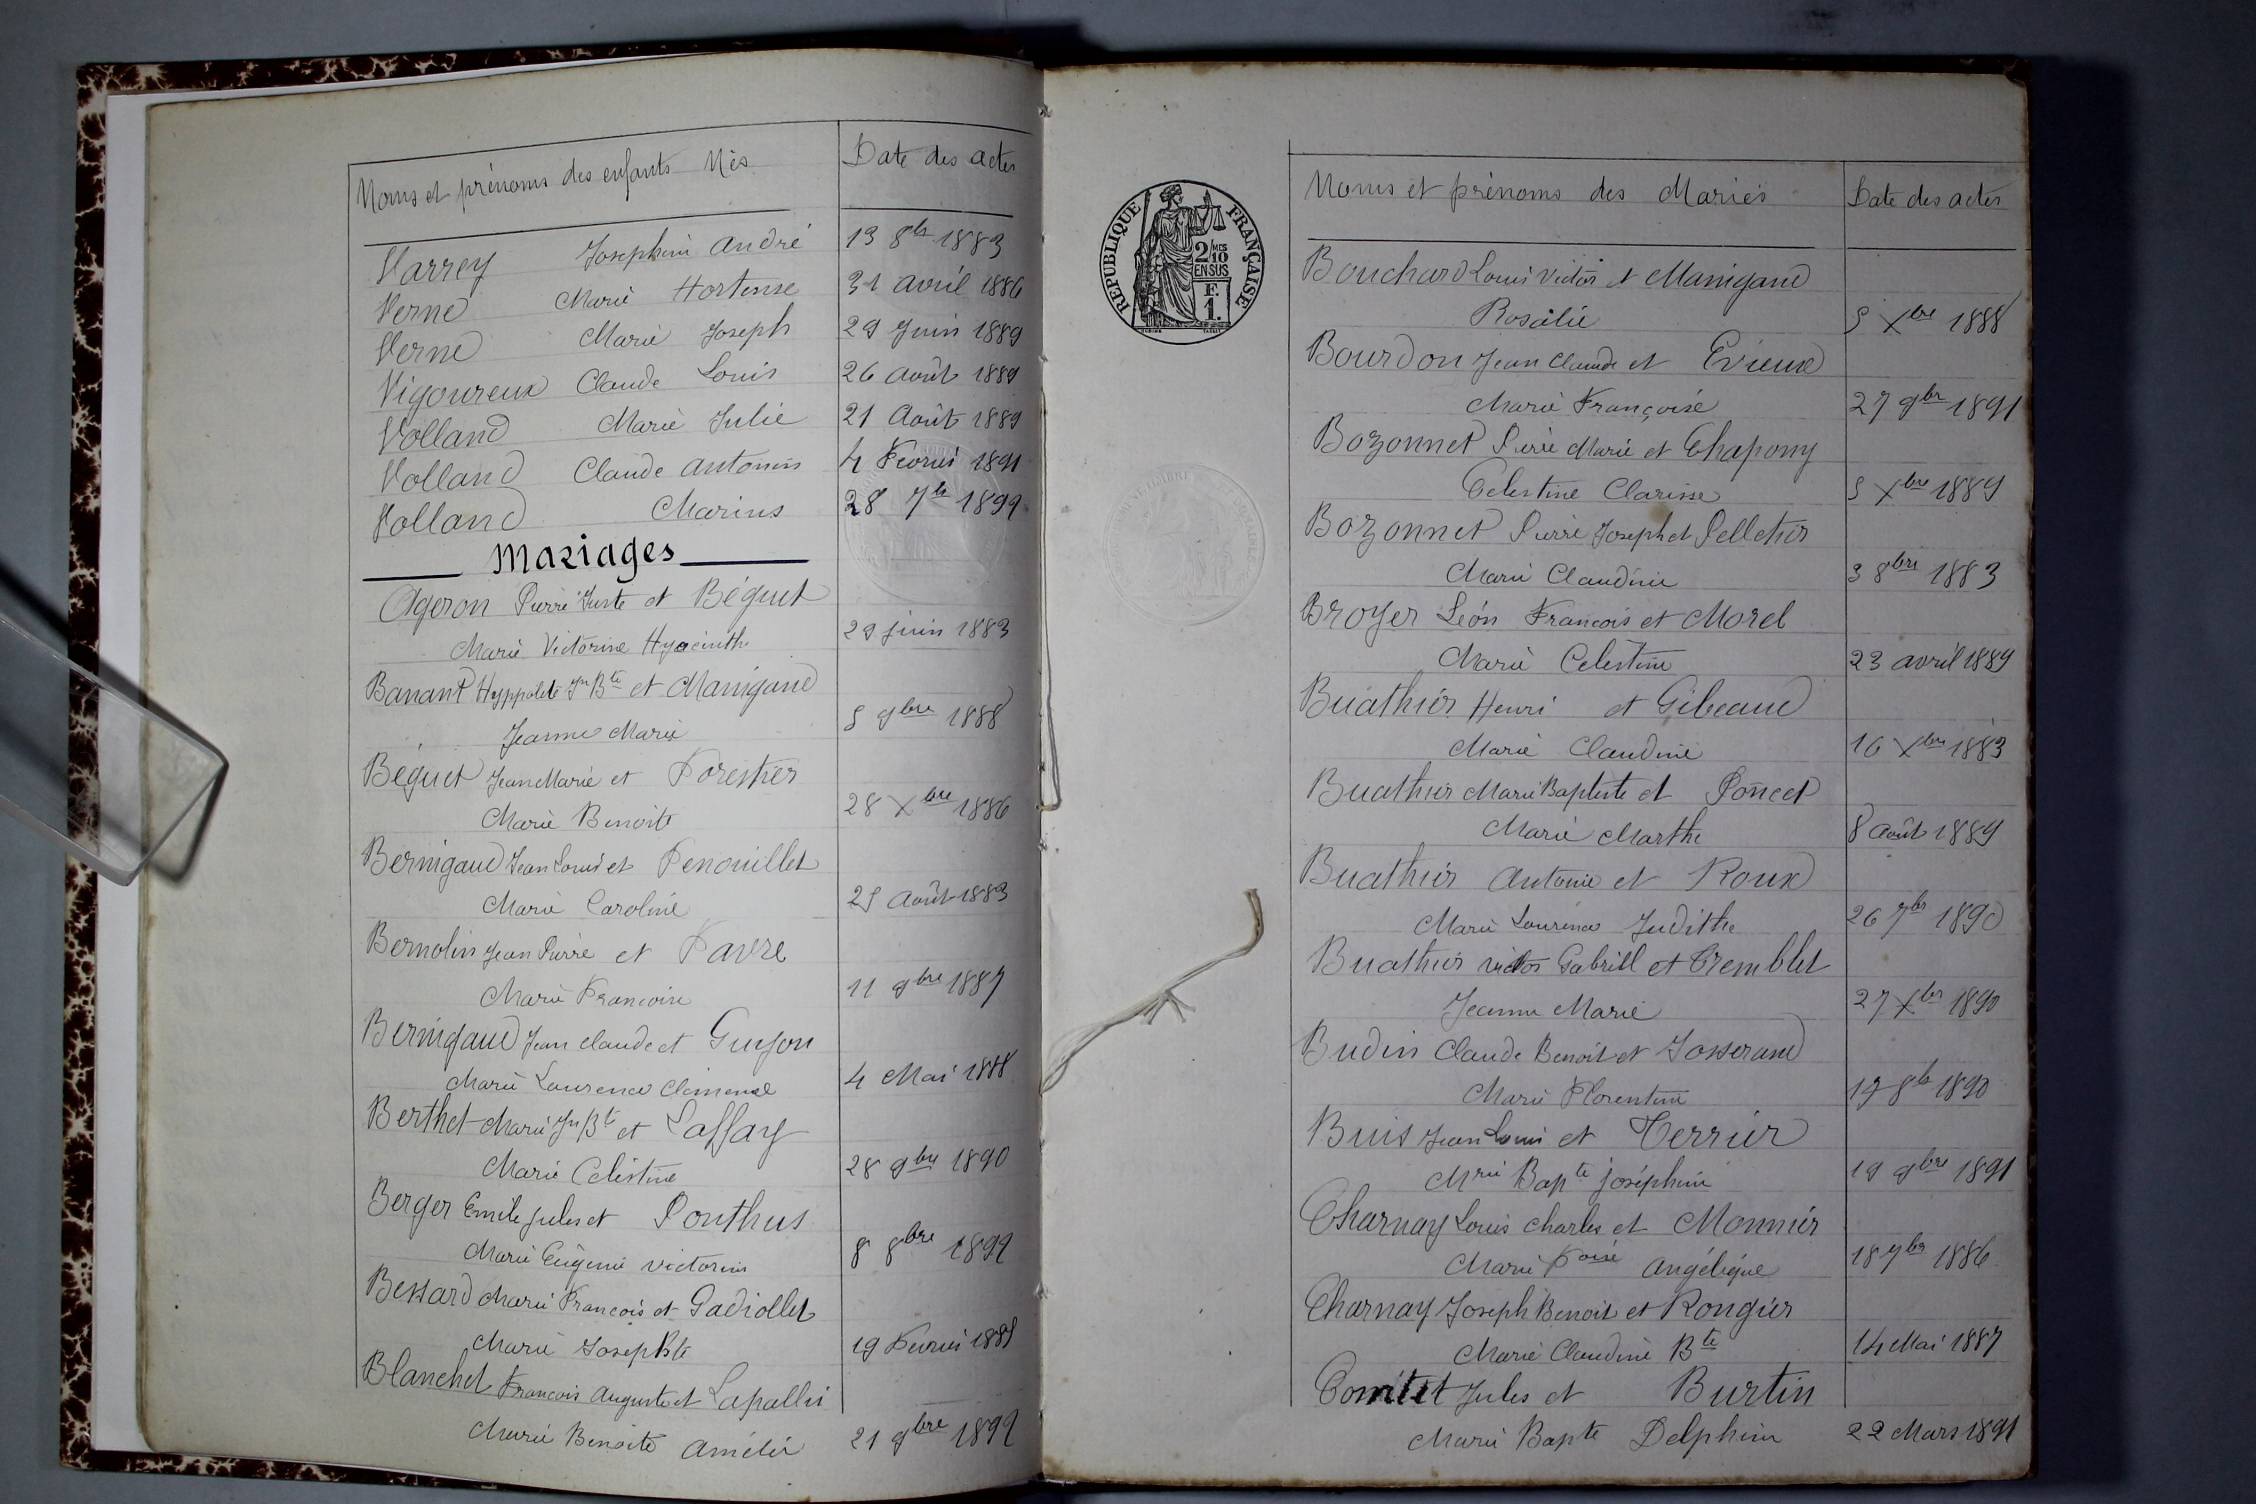 Noms et prénoms des enfants Nés Date des actes
Varrey Joséphin André 13 8bre 1883
Verne Marie Hortense 31 avril 1886
Verne Marie Joseph 29 Juin 1889
Vigoureux Claude Louis 26 août 1889
Volland Marie Julie 21 Août 1889
Volland Claude Antonin 4 Février 1891
Volland Marius 28 7bre 1892
Mariages
Ageron Pierre Juste et Béguet
Marie Victorine Hyacinthe 29 juin 1883
Banant Hyppolite Jn Bte et Manigand
Jeanne Marie 5 9bre 1888
Béguet Jean Marie et Forestier
Marie Benoite 28 Xbre 1886
Bernigaud Jean Louis et Fenouillet
Marie Caroline 25 Août 1883
Bernolin Jean Pierre et Favre
Marie Francoise 11 9bre 1887
Bernigaud Jean Claude et Guyon
Marie Laurence Clémence 4 Mai 1888
Berthet Marie Jn Bte et Laffay
Marie Celestine 28 9bre 1890
Berger Emile Jules et Ponthus
Marie Eugénie Victorine 8 8bre 1892
Bessard Marie Francois et Gadiollet
Marie Josephte 19 Février 1885
Blanchet Francois Auguste et Lapallis
Marie Benoite Amélie 21 9bre 1892
RÉPUBLIQUE FRANÇAISE
2/10 MES
EN SUS
F.
1.
Noms et prénoms des Mariés Date des actes
Bouchard Louis Victor et Manigand
Rosalie 5 Xbre 1888
Bourdon Jean Claude et Evieux
Marie Françoise 27 9bre 1891
Bozonnet Pierre Marie et Chapony
Celestine Clarisse 5 Xbre 1889
Bozonnet Pierre Joseph et Pelletier
Marie Claudine 3 8bre 1883
Broyer Léon Francois et Morel
Marie Celestine 23 avril 1889
Buathier Henri et Gibeaud
Marie Claudine 16 Xbre 1883
Buathier Marie Baptiste et Poncet
Marie Marthe 8 août 1889
Buathier Antoine et Roux
Marie Laurence Judithe 26 7bre 1890
Buathier Victor Gabriel et Tremblet
Jeanne Marie 27 Xbre 1890
Budin Claude Benoit et Josserand
Marie Florentine 17 8bre 1890
Buis Jean Louis et Terrier
Mrie Bapte joséphine 19 9bre 1891
Charnay Louis Charles et Monnier
Marie Foise Angélique 18 7bre 1886
Charnay Joseph Benoit et Rongier
Marie Claudine Bte 14 Mai 1887
Comtet Jules et Burtin
Marie Bapte Delphine 22 Mars 1891